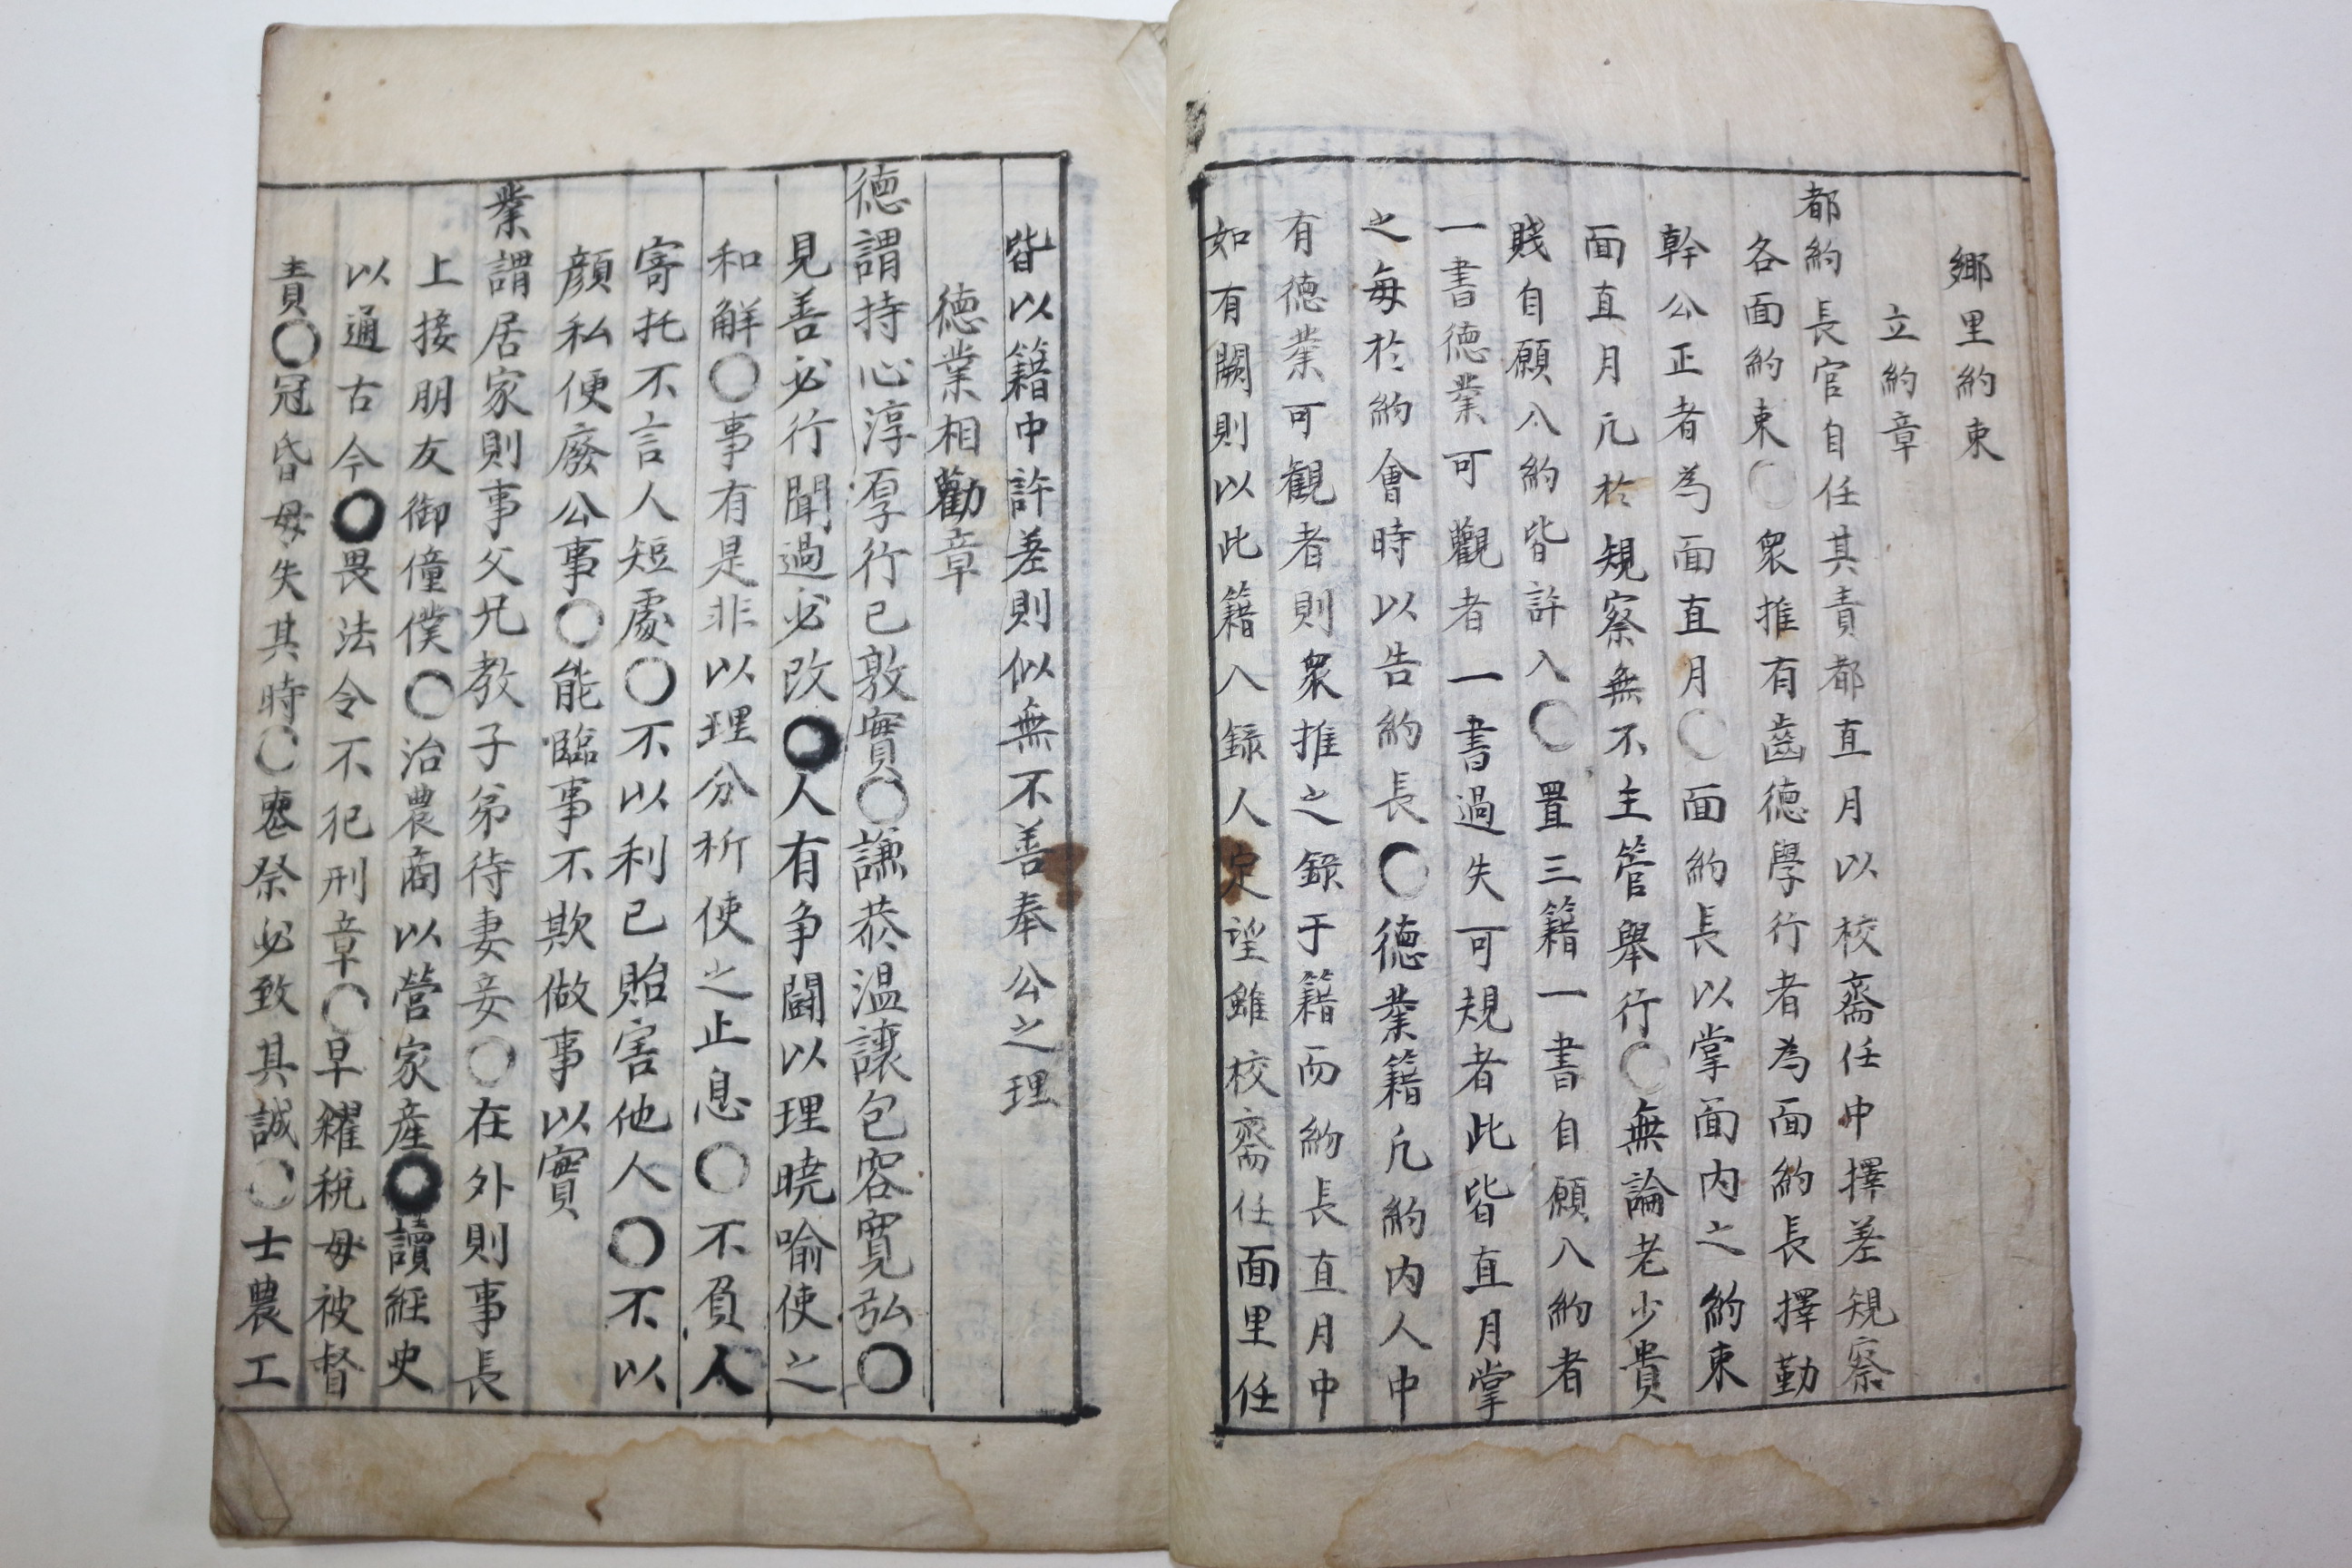 鄉里約束
立約章
都約長官自任其責都直月以校齋任中擇差規察
各面約束○衆推有齒德學行者為面約長擇勤
幹公正者為面直月○面約長以掌面內之約束
面直月凢於規察無不主管舉行○無論老少貴
賤自願入約皆許入○置三籍一書自願入約者
一書德業可觀者一書過失可規者此皆直月掌
之每於約會時以告約長○德業籍凢約內人中
有德業可観者則衆推之錄于籍而約長直月中
如有闕則以此籍入録人定望雖校齋任面里任
皆以籍中許差則似無不善奉公之理
德業相勸章
德謂持心淳厚行己敦實○謙恭温讓包容寬弘○
見善必行聞過必改○人有争鬪以理曉喻使之
和解○事有是非以理分析使之止息○不負人
寄托不言人短處○不以利己貽害他人○不以
顔私便廢公事○能臨事不欺做事以實
業謂居家則事父兄教子弟待妻妾○在外則事長
上接朋友御僮僕○治農商以營家産○讀経史
以通古今○畏法令不犯刑章○早糴税毋被督
責○冠昏毋失其時○䘮祭必致其誠○士農工